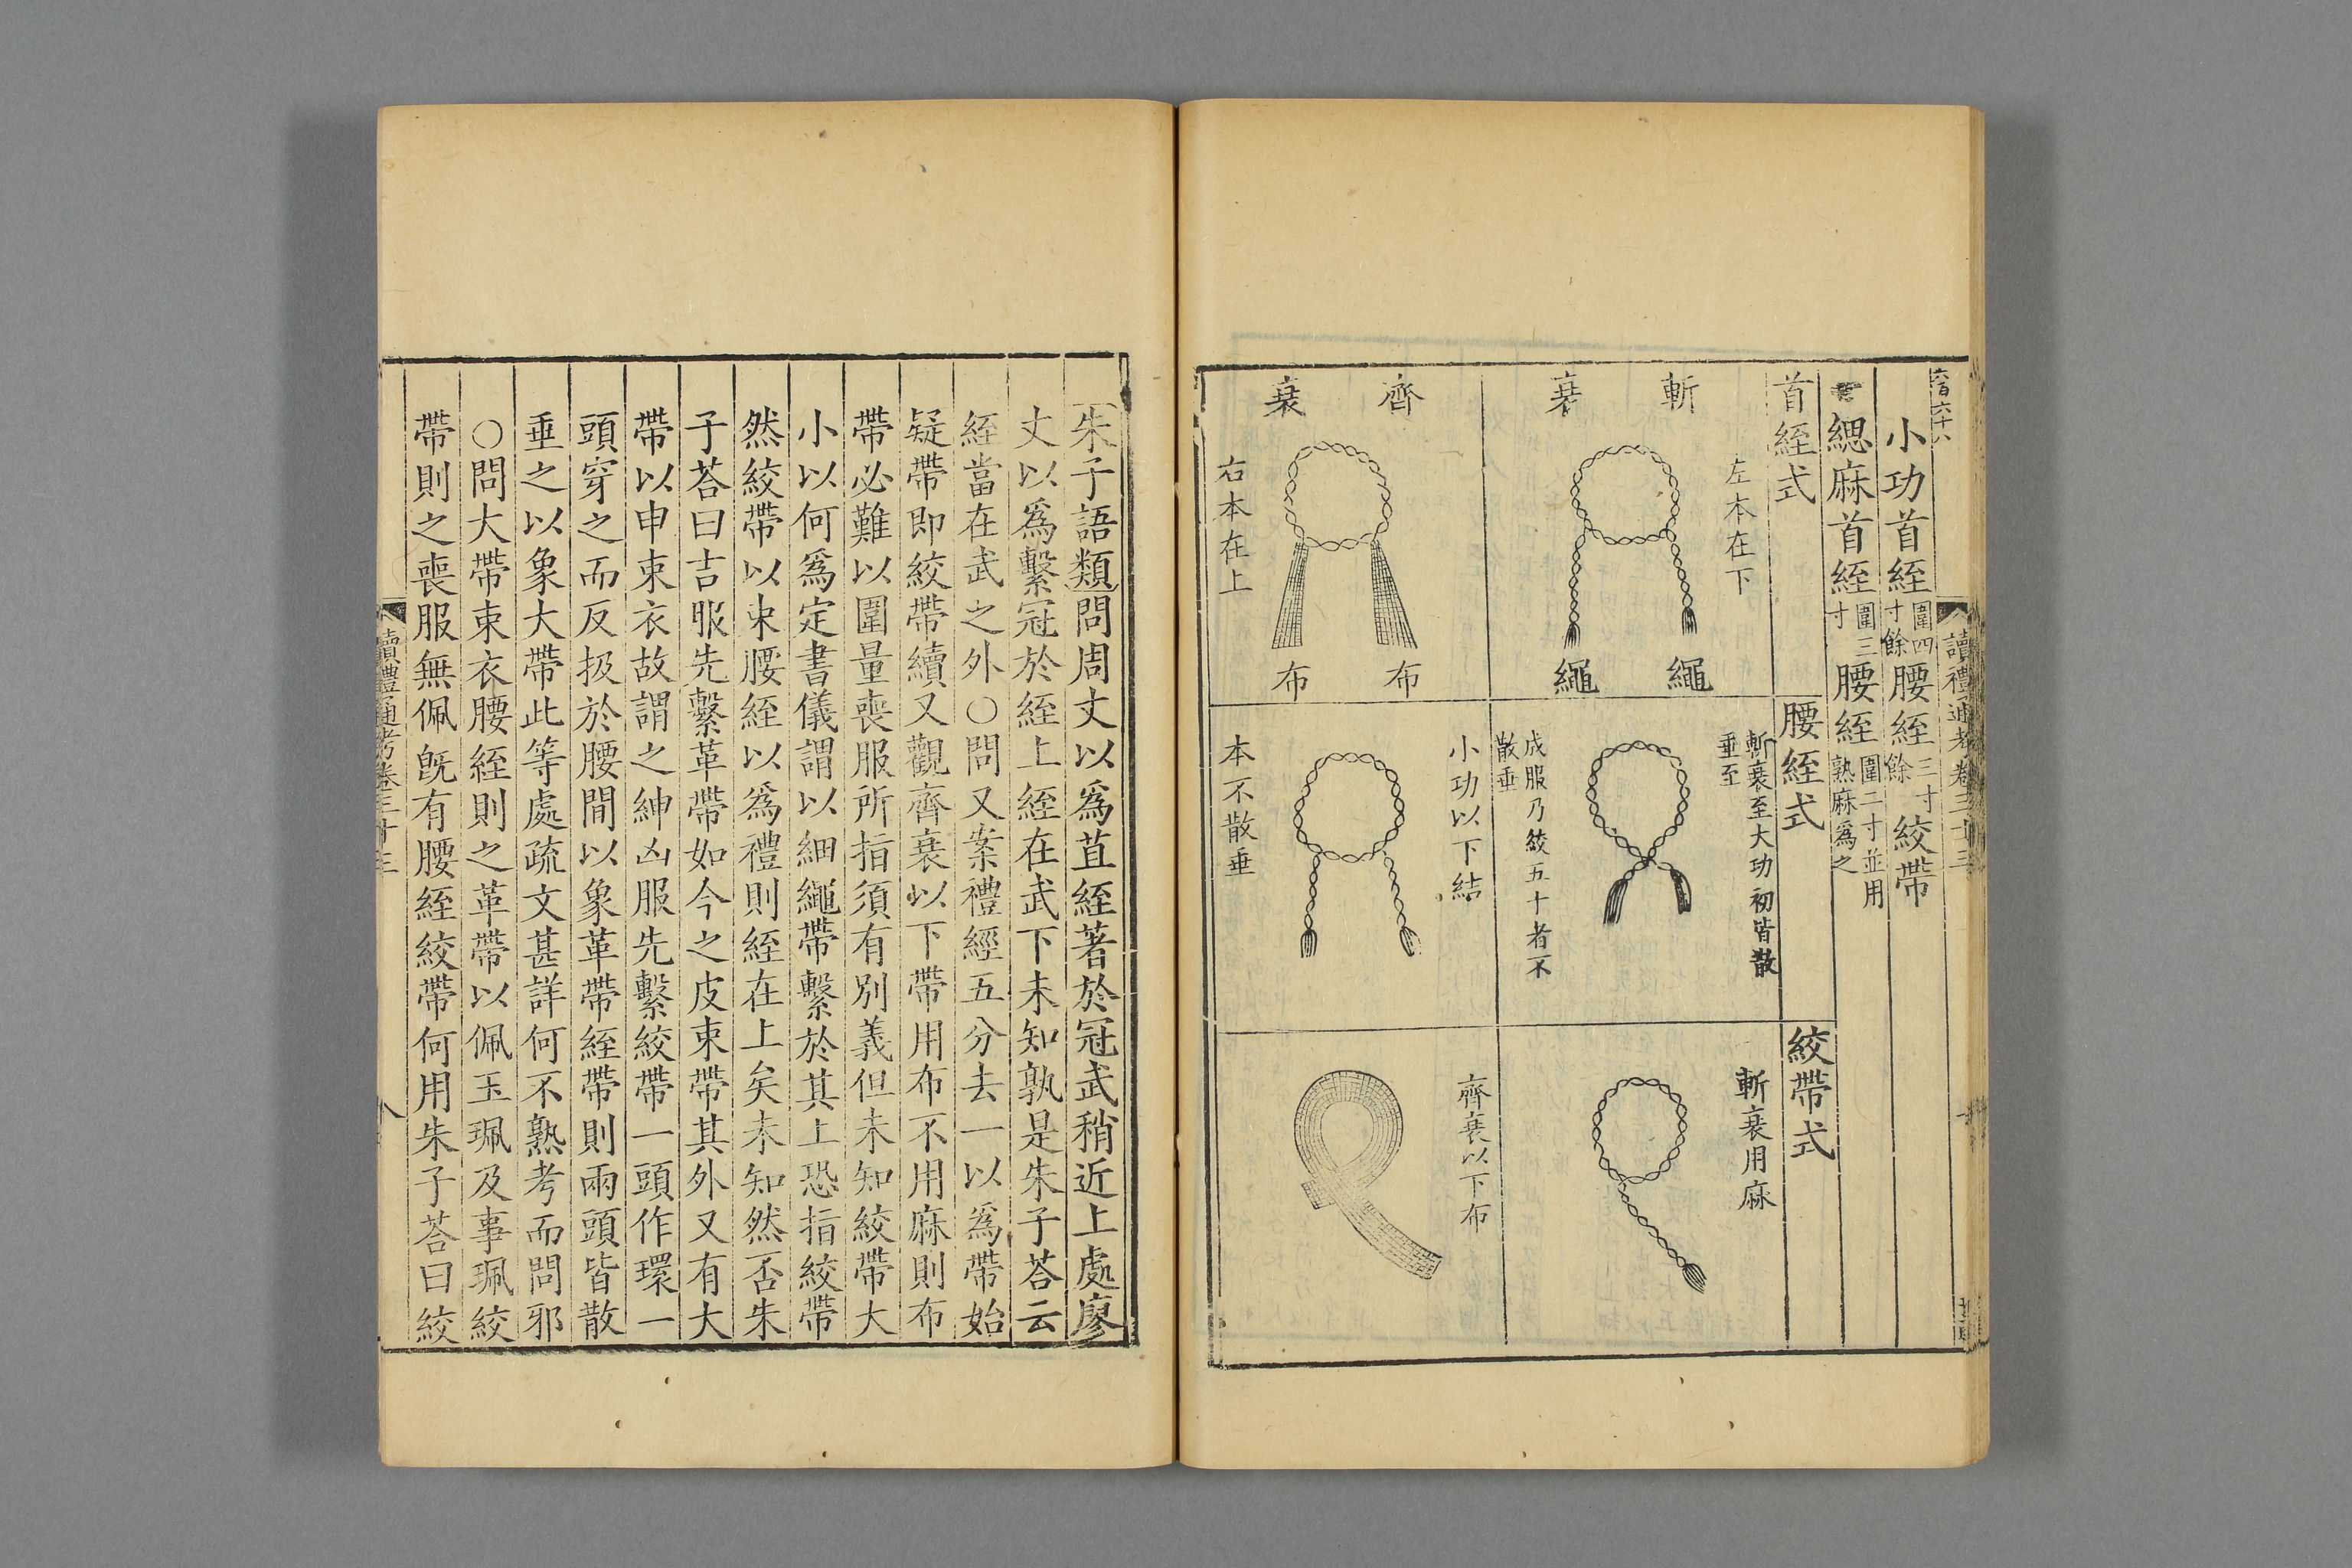 讀禮通考卷三十三
小功首絰圍四寸餘腰絰三寸餘絞帶
緦麻首絰圍三寸腰絰圍二寸並用熟麻爲之
首絰式
斬衰
左本在下
繩
繩
齊衰
右本在上
布
布
腰絰式
斬衰至大功初皆散
垂至
成服乃絞五十者不
散垂
小功以下結
本不散垂
絞帶式
斬衰用麻
齊衰以下布
朱子語類問周丈以爲苴絰著於冠武稍近上處廖
丈以爲繫冠於絰上絰在武下未知孰是朱子荅云
絰當在武之外○問又案禮經五分去一以爲帶始
疑帶即絞帶續又觀齊衰以下帶用布不用麻則布
帶必難以圍量喪服所指須有別義但未知絞帶大
小以何爲定書儀謂以細繩帶繫於其上恐指絞帶
然絞帶以束腰絰以爲禮則絰在上矣未知然否朱
子荅曰吉服先繫革帶如今之皮束帶其外又有大
帶以申束衣故謂之紳凶服先繫絞帶一頭作環一
頭穿之而反扱於腰間以象革帶絰帶則兩頭皆散
垂之以象大帶此等處疏文甚詳何不熟考而問邪
○問大帶束衣腰絰則之革帶以佩玉珮及事珮絞
帶則之喪服無佩旣有腰絰絞帶何用朱子荅曰絞
讀禮通考卷三十三
八